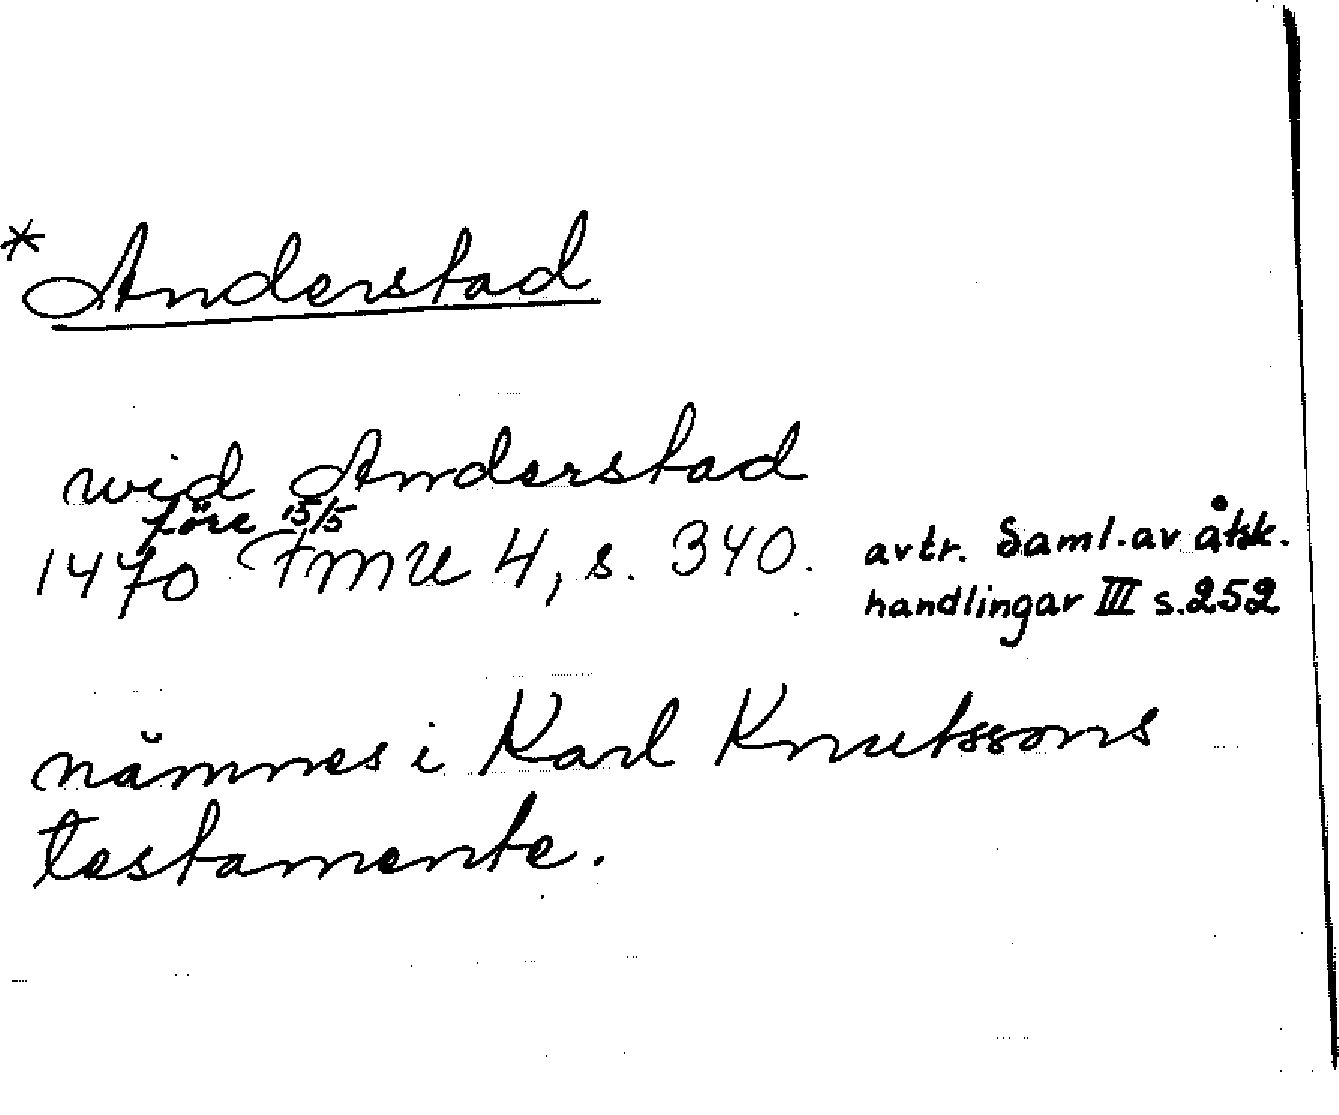 *Anderstad
wid Anderstad
före 15/5
1470 FMU 4, s. 340. avtr. Saml. av åtsk.
handlingar III s.252
nämnes i Karl Knutssons
testamente.